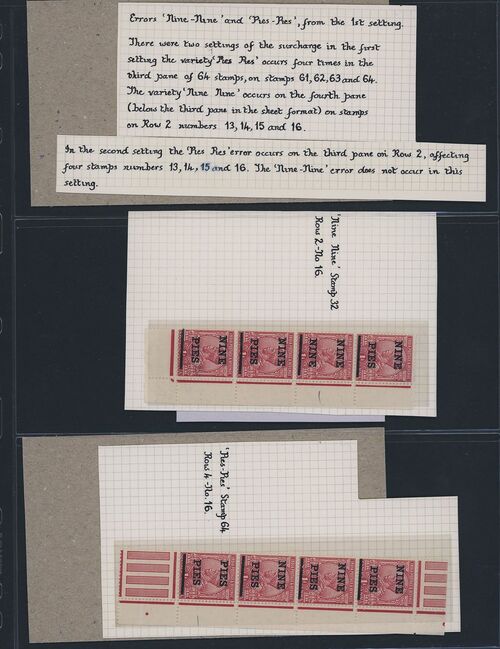 Errors 'Nine-Nine' and 'Pies-Pies', from the 1st setting.
There were two settings of the surcharge in the first
setting the variety 'Pies Pies' occurs four times in the
third pane of 64 stamps, on stamps 61, 62, 63 and 64.
The variety 'Nine Nine' occurs on the fourth pane
(below the third pane in the sheet format) on stamps
on Row 2 numbers 13, 14, 15 and 16.
In the second setting the 'Pies Pies' error occurs on the third pane on Row 2, affecting
four stamps numbers 13, 14, 15 and 16. The 'Nine-Nine' error does not occur in this
setting.
'Nine Nine' Stamp 32
Row 2 - No 16.
NINE PIES
NINE NINE
NINE PIES
NINE PIES
'Pies-Pies' Stamp 64
Row 4 - No. 16.
NINE PIES
NINE PIES
NINE PIES
PIES PIES